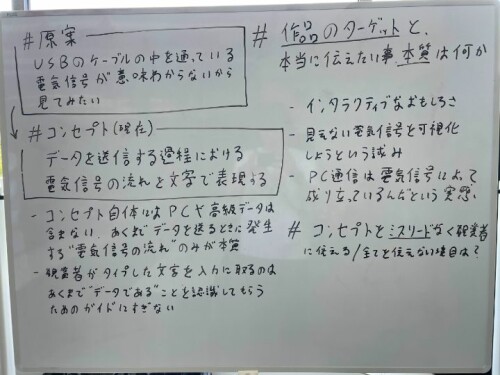 #原案
USBのケーブルの中を通っている
電気信号が意味わからないから
見てみたい
#コンセプト(現在)
データを送信する過程における
電気信号の流れを文字で表現する
- コンセプト自体にはPCや高級データは
含まない、あくまでデータを送るときに発生
する"電気信号の流れ"のみが本質
- 鑑賞者がタイプした文字を入力に取るのは
あくまで"データである"ことを認識してもらう
ためのガイドにすぎない
# 作品のターゲットと、
本当に伝えたい事 本質は何か
- インタラクティブなおもしろさ
- 見えない電気信号を可視化
しようという試み
- PC通信は電気信号によって
成り立っているんだという実感。
# コンセプトをミスリードなく鑑賞者
に伝える/全てを伝えない項目は?